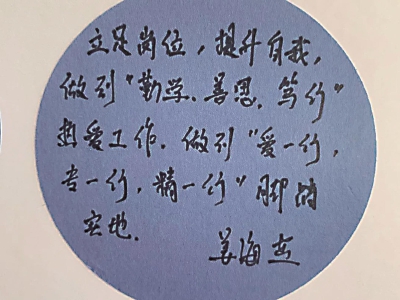 立足岗位，提升自我，
做到“勤学、善思、笃行”
热爱工作. 做到“爱一行，
专一行，精一行”脚踏
实地.
姜海